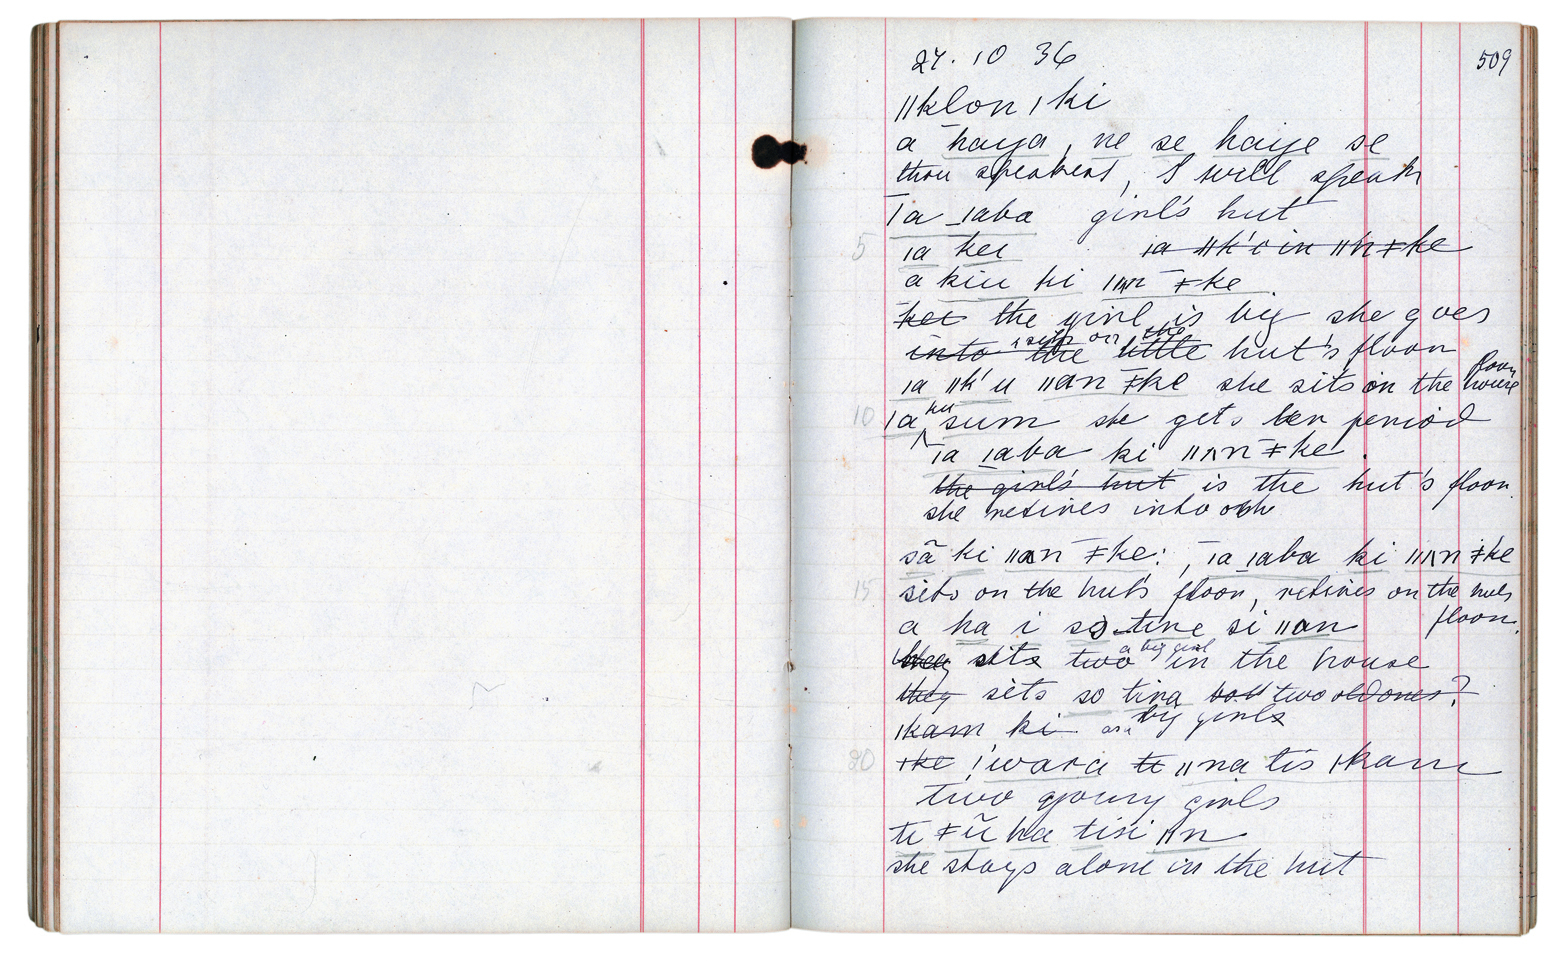 27. 10 36 509
ǁklon ǀki
a haya, ne se haiye se
thou speakest, I will speak
ǀa ǀaba girl's hut
5 ǀa kei ǀa ǁk'i in ǁn ǂke
a kiu ki ǂke
kei the girl is big she goes
sits on the
into the little hut's floor
floor
ǀa ǁk'u ǁan ǂke she sits on the house
10 ǀa sum she gets her period
ǀa ǀaba ki ǁʌn ǂke.
the girl's hut is the hut's floor.
she retires into
sã ki ǁan ǂke:, ǀa ǀaba ki ǁʌn ǂke
15 sits on the hut's floor, retires on the huts
floor.
a ha i so tine si ǁan
a big girl
they sits two in the house
they sits so tina two old ones?
ǀkam ki big girls
20 ǂke !wara ti ǁna tis ǀkam
two young girls
ti ǂũ ha tisi ǁn
she stays alone in the hut